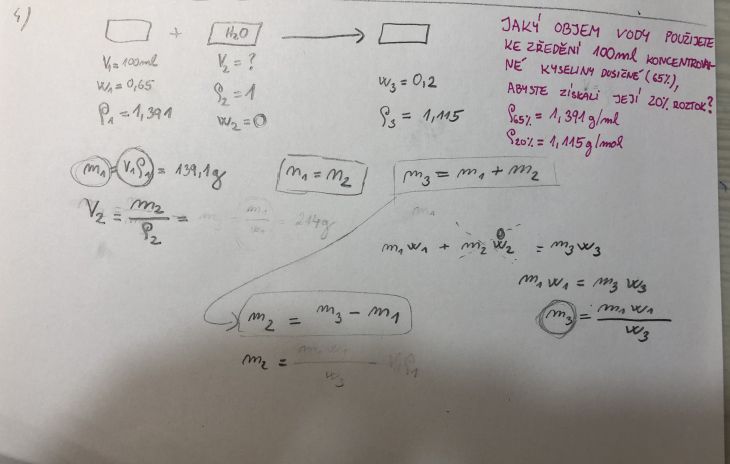 4)
+ H₂O
V₁=100ml V₂ = ?
w₁=0,65 ρ₂ = 1 w₃ = 0,2
ρ₁ = 1,391 w₂ = 0 ρ₃ = 1,115
JAKÝ OBJEM VODY POUŽIJETE
KE ZŘEDĚNÍ 100ml KONCENTROVA-
NÉ KYSELINY DUSIČNÉ (65%),
ABYSTE ZÍSKALI JEJÍ 20% ROZTOK?
ρ65% = 1,391 g/ml
ρ20% = 1,115 g/mol
m₁ = V₁ρ₁ = 139,1g
n₁ = n₂
m₃ = m₁ + m₂
V₂ = m₂/ρ₂ =
= 214g
m₁
m₁w₁ + m₂w₂ = m₃w₃
0
m₁w₁ = m₃w₃
m₃ = m₁w₁/w₃
m₂ = m₃ - m₁
m₂ = m₁w₁/w₃ - V₁ρ₁